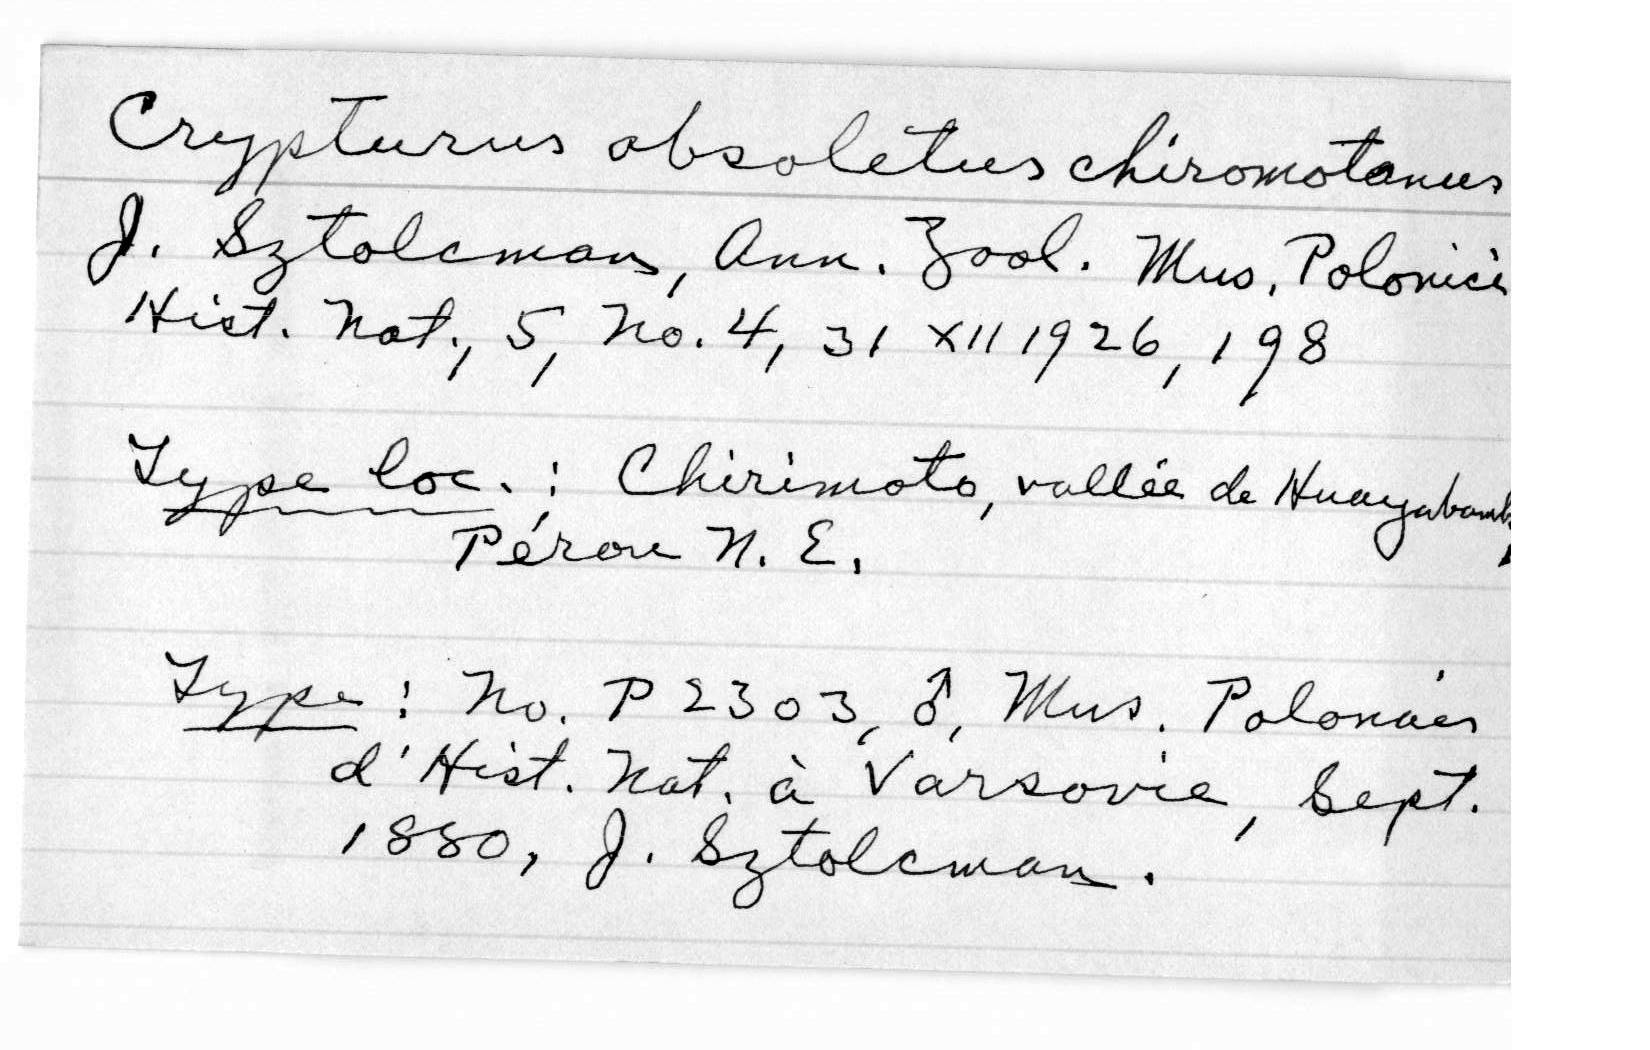 Crypturus obsoletus chiromotanus
J. Sztolcman, Ann. Zool. Mus. Polonici
Hist. Nat., 5, No. 4, 31 XII 1926, 198
Type loc.: Chirimoto, vallée de Huayabamb
Pérou N. E.
Type: No. P2303, ♂, Mus. Polonais
d'Hist. Nat. à Varsovie, Sept.
1880, J. Sztolcman.